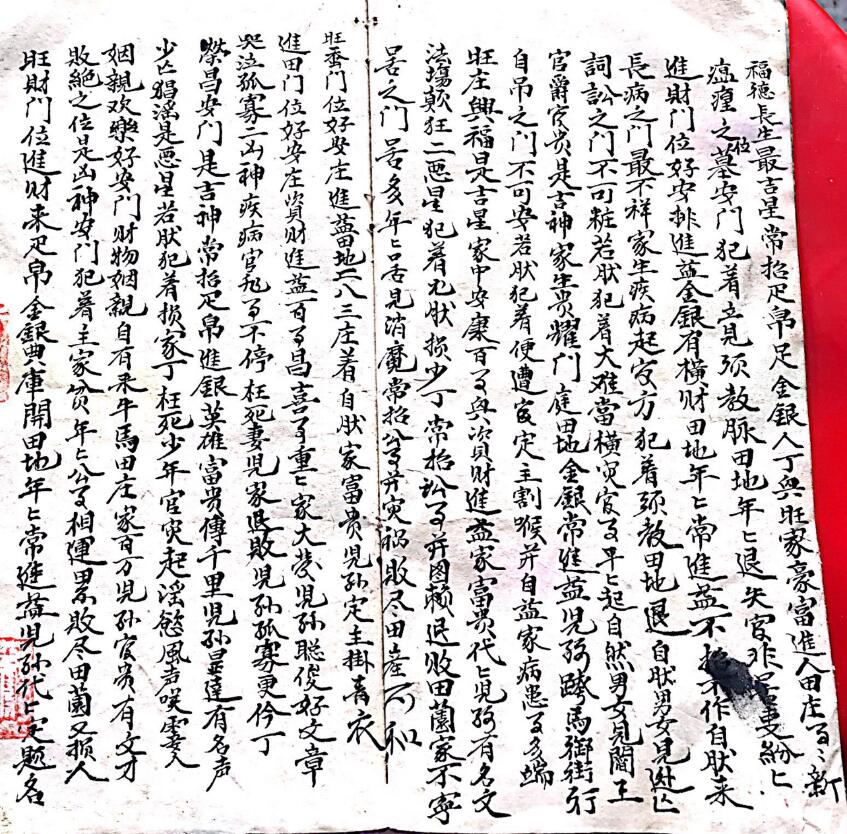 福德長生最吉星常招疋帛足金銀人丁興旺家豪富進人田庄百〻新
瘟瘟之位墓安門犯着立見須教脈田地年〻退失官非 重紛〻
進財門位好安排進益金銀有橫財田地年〻常進益不招不作自肰来
長病之門最不祥家生疾病起官方犯着須教田地退自肰男女見逃亡
詞訟之門不可粧若肰犯着大难當橫灾官事早〻起自然男女見閻王
官爵安貴是吉神家生贵耀門庭田地金銀常進益児孫蹄馬御街行
自吊之門不可安若肰犯着便遭官定主割喉并自益家病患事多端
旺庄興福是吉星家中安康百事興資財進益家富贵代〻児孫有名文
法場颠狂二悪星犯着九肰损少丁常招訟事并图赖退败田園家不寧
吕之門吕多年〻吕見消魔常招公事并灾祸败尽田產可和
旺蚕門位好安庄進益田地二八三庄着自肰家富贵児孙定主掛青衣
進田門位好安庄資財進益百事昌喜事重〻家大發児孙聪俊好文章
哭泣孤寡二凶神疾病官非事不停枉死妻児家退敗児孙孤寡更伶丁
榮昌安門是吉神常招疋帛進銀英雄富贵傳千里児孙显達有名声
少亡娼淫是悪星若肰犯着损家丁枉死少年官灾起淫慾風声 人
姻親欢樂好安門財物姻親自有来牛馬田庄家百万児孙官贵有文才
敗絶之位是凶神安門犯着主家贫年〻公事相連累敗尽田園又损人
旺財門位進财来疋帛金銀典庫開田地年〻常進益児孙代〻史题名